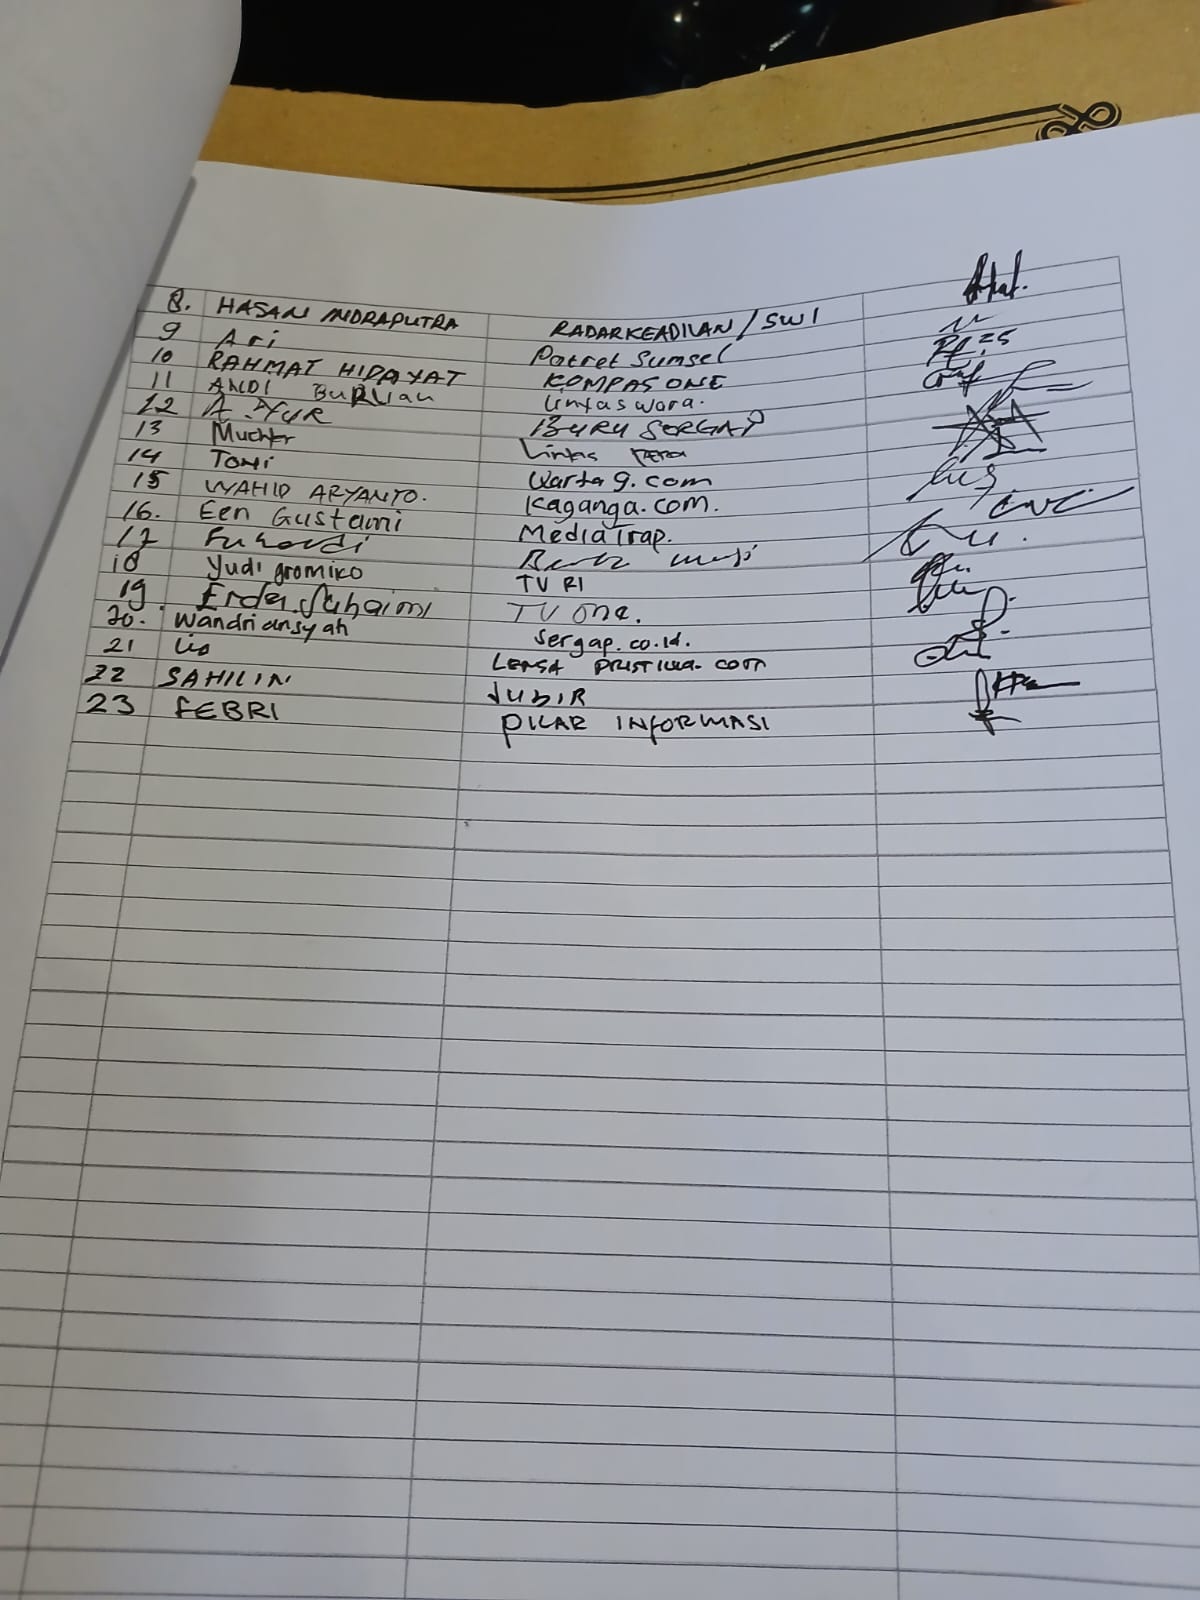 8. HASAN INDRAPUTRA RADARKEADILAN / SWI
9 Ari Potret Sumsel
10 RAHMAT HIDAYAT KOMPAS ONE
11 ANDI BURLIAN Lintaswara.
12 BURU SERGAP
13 Muchtar Lintas
14 TOMI Warta 9.com
15 WAHID ARYANTO. Kaganga.com.
16. Een Gustami MediaTrap.
17
18 Yudi gromiko TVRI
19. Erdan Suhaimi TV One.
20. Wandriansyah Sergap.co.id.
21 Lis LENSA
22 SAHILIN JUBIR
23 FEBRI PILAR INFORMASI